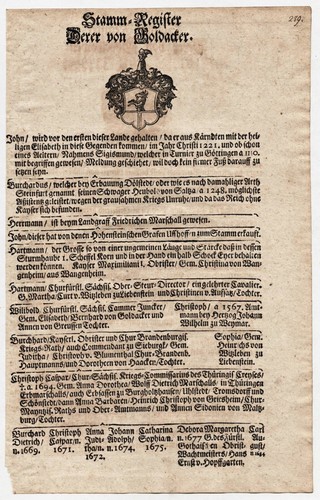 Stamm-Register
Derer von Goldacker.
219.
John / wird vor den ersten dieser Lande gehalten / da er aus Kärndten mit der hei-
ligen Elisabeth in diese Gegenden kommen / im Jahr Christi 1221, und ob schon
eines Aeltern / Nahmens Sigismund / welcher in Turnier zu Göttingen a 1110.
mit begriffen gewesen / Meldung geschiehet / wil doch kein ferner Fuß darauff zu
setzen seyn.
Burchardus / welcher bey Erbauung Döllstede / oder wie es nach damahliger Arth
Steinfurt genannt seinen Schwager Henbold von Saltza a 1248. möglichste
Assistentz geleistet / wegen der graugsamen Kriegs Unruhe / und da das Reich ohne
Kayser sich befunden.
Herrmann / ist beym Landgraff Friedrichen Marschall gewesen.
John / dieser hat von denen Hohensteinschen Grafen Ufhoffen zum Stamm erkaufft.
Hartmann / der Grosse so von einer ungemeinen Länge und Stärcke daß in dessen
Sturmhaube 1. Scheffel Korn und in der Hand ein halb Schock Eyer behalten
werden können. Kayser Maximiliani I. Obrister / Gem. Christina von Wan-
genheim / aus Wangenheim.
Hartmann / Churfürstl. Sächsl. Ober-Steur-Director / ein gelehrter Cavalier.
G. Martha / Curt v. Witzleben zu Liebenstein und Christinen v. Auffatz / Tochter.
Wilibold / Churfürstl. Sächsl. Cammer Juncker /
Gem. Elisabeth / Bernhard von Goldacker und
Annen von Greussen Tochter.
Christoph / a 1567, Amt-
mann bey Hertzog Johann
Wilhelm zu Weymar.
Burchard / Kayserl. Obrister und Chur Brandenburgif.
Kriegs-Rath / auch Commendant zu Siebergk / Gem.
Juditha / Christoph v. Blumenthal Chur-Brandenb.
Hauptmanns / und Dorotheen von Haacke / Tochter.
Sophia / Gem.
Heinrichs von
Witzleben zu
Liebenstein.
Christoph Caspar / Chur-Sächsl. Kriegs-Commissarius des Thüringif. Creyses /
† a. 1694. Gem. Anna Dorothea / Wolff Dietrich Marschalls in Thüringen
Erdmarschalls / auch Erbsassen zu Burgholtzhausen / Uhlstedt / Tromsdorff und
Schönstedt / dann Anna Barbaren / Heinrich Christoph von Griesheim / Chur-
Mayntzif. Raths und Ober-Amtmanns / und Annen Sidonien von Maltz-
burg / Tochter.
Burchard
Dietrich /
n. 1669.
Christoph
Caspar / n.
1671.
Anna
Judi-
tha / n.
1672.
Johann
Adolph /
n. 1674.
Catharina
Sophia n.
1675.
Debora Margaretha Carl
n. 1677 G. des Fürstl. Au-
Gothaischen Obrist-
Wachtmeisters / Hans
Ernst v. Hopffgarten,